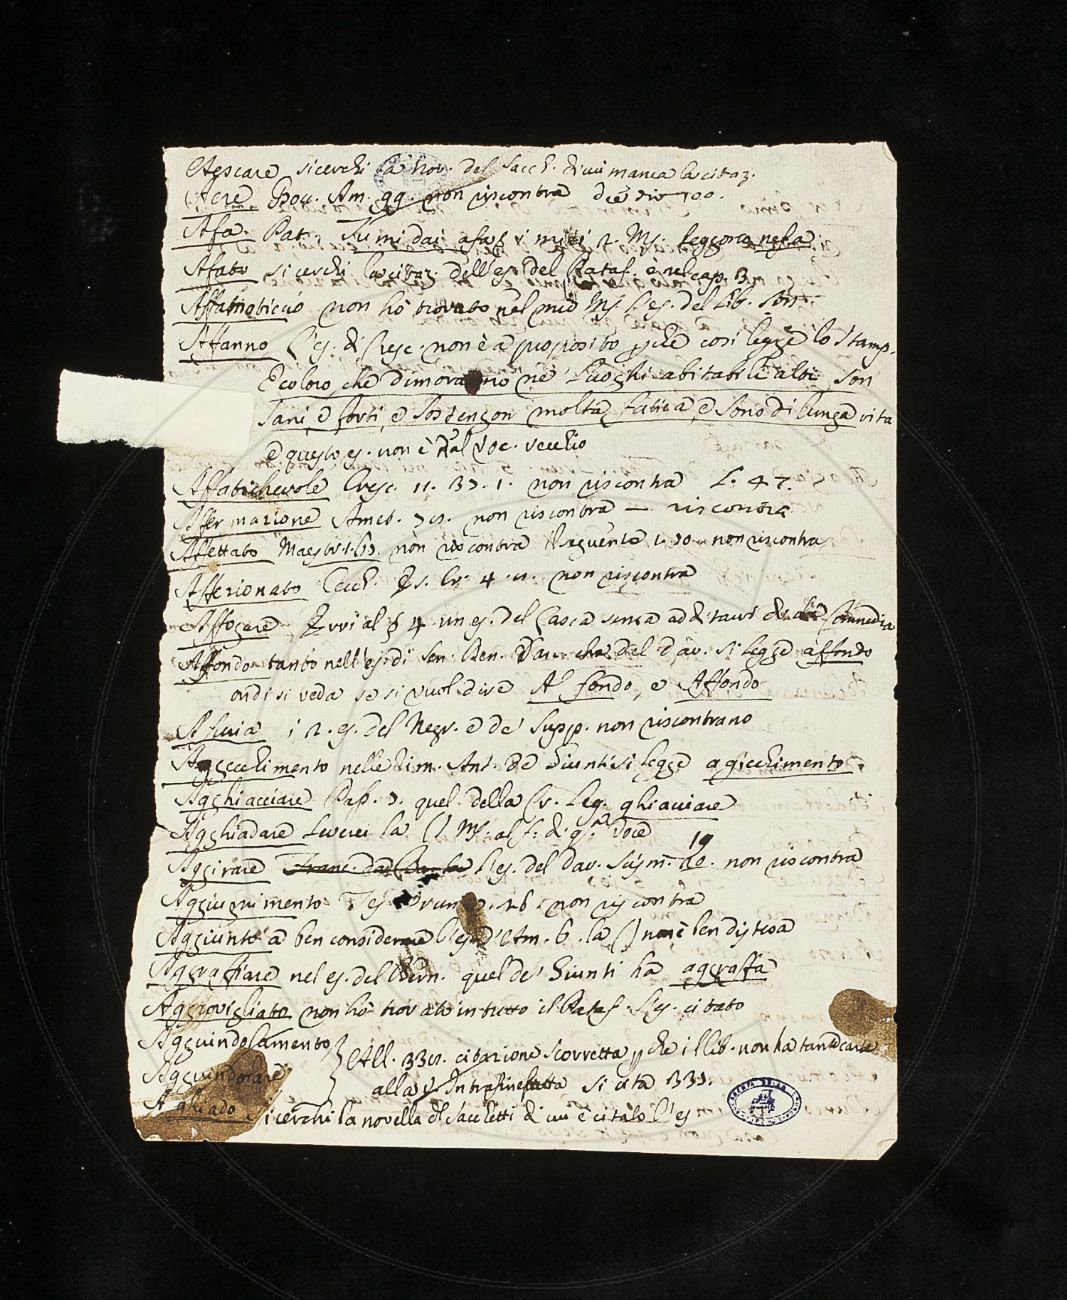 Aescare si cerchi la nov. del Sacch. di cui manca la citaz.
Aere Bocc. Am. 99. non riscontra dice div 100.
Afa. Pat. Tu mi dai afa e i miei 2. Ms. leggono nella
Afato si cerchi la citaz. dell'es. del Pataf. è nel cap. 3.
Affamaticcio non hò trovato nel mio Ms. l'es. del lib. Son.
Affanno l'es. di Cresc. non è a proposito p che così legge lo Stamp.
Ecoloro che dimorano ne' Luoghi abitabili alti son
sani, e forti, e sostengon molta fatica, e sono di lunga vita
e questo es. non è dal Voc. vecchio
Affatichevole Cresc. 11. 39. 1. non riscontra L. 47.
Affermazione Amet. 90. non riscontra — riscontra
Affettato Maestr. 1. 63. non riscontra il seguente 1. 30. non riscontra
Affezionato Cecch. Es. Cr. 4. 11. non riscontra
Affogare Evvi al § 4 un es. del Lasca senza additare di Commedia
Affondo tanto nell'es. di Sen. Ben. Varc. che del Dav. si legge affondo
ondi si veda se si vuol dire Al fondo, e Affondo
i 2. es. del Negr. e de' Supp. non riscontrano
Aggecchimento nelle Rim. Ant. de Giunti si legge agicchimento.
Agghiacciare Pass. 9. quel della Cr. leg. ghiacciare
Agghiadare la Ms. al voce
Aggirare l'es. del Dav. Scism. 19 non riscontra
Aggiugnimento l'es. 26. non riscontra
Aggiunto a ben considerare l'es. d'Am. 6. la non è ben distesa
Aggraffare nel es. del Bern. quel de' Giunti ha aggraffa
Aggrovigliato non hò trovato in tutto il Pataf. l'es. citato
Agguindolamento
All. 330. citazione scorretta p che il lib. non ha tante carte
Agguindolare
alla Intrafinefatta si cita 339.
Agliado si cerchi la novella del Sacchetti di cui è citato l'es